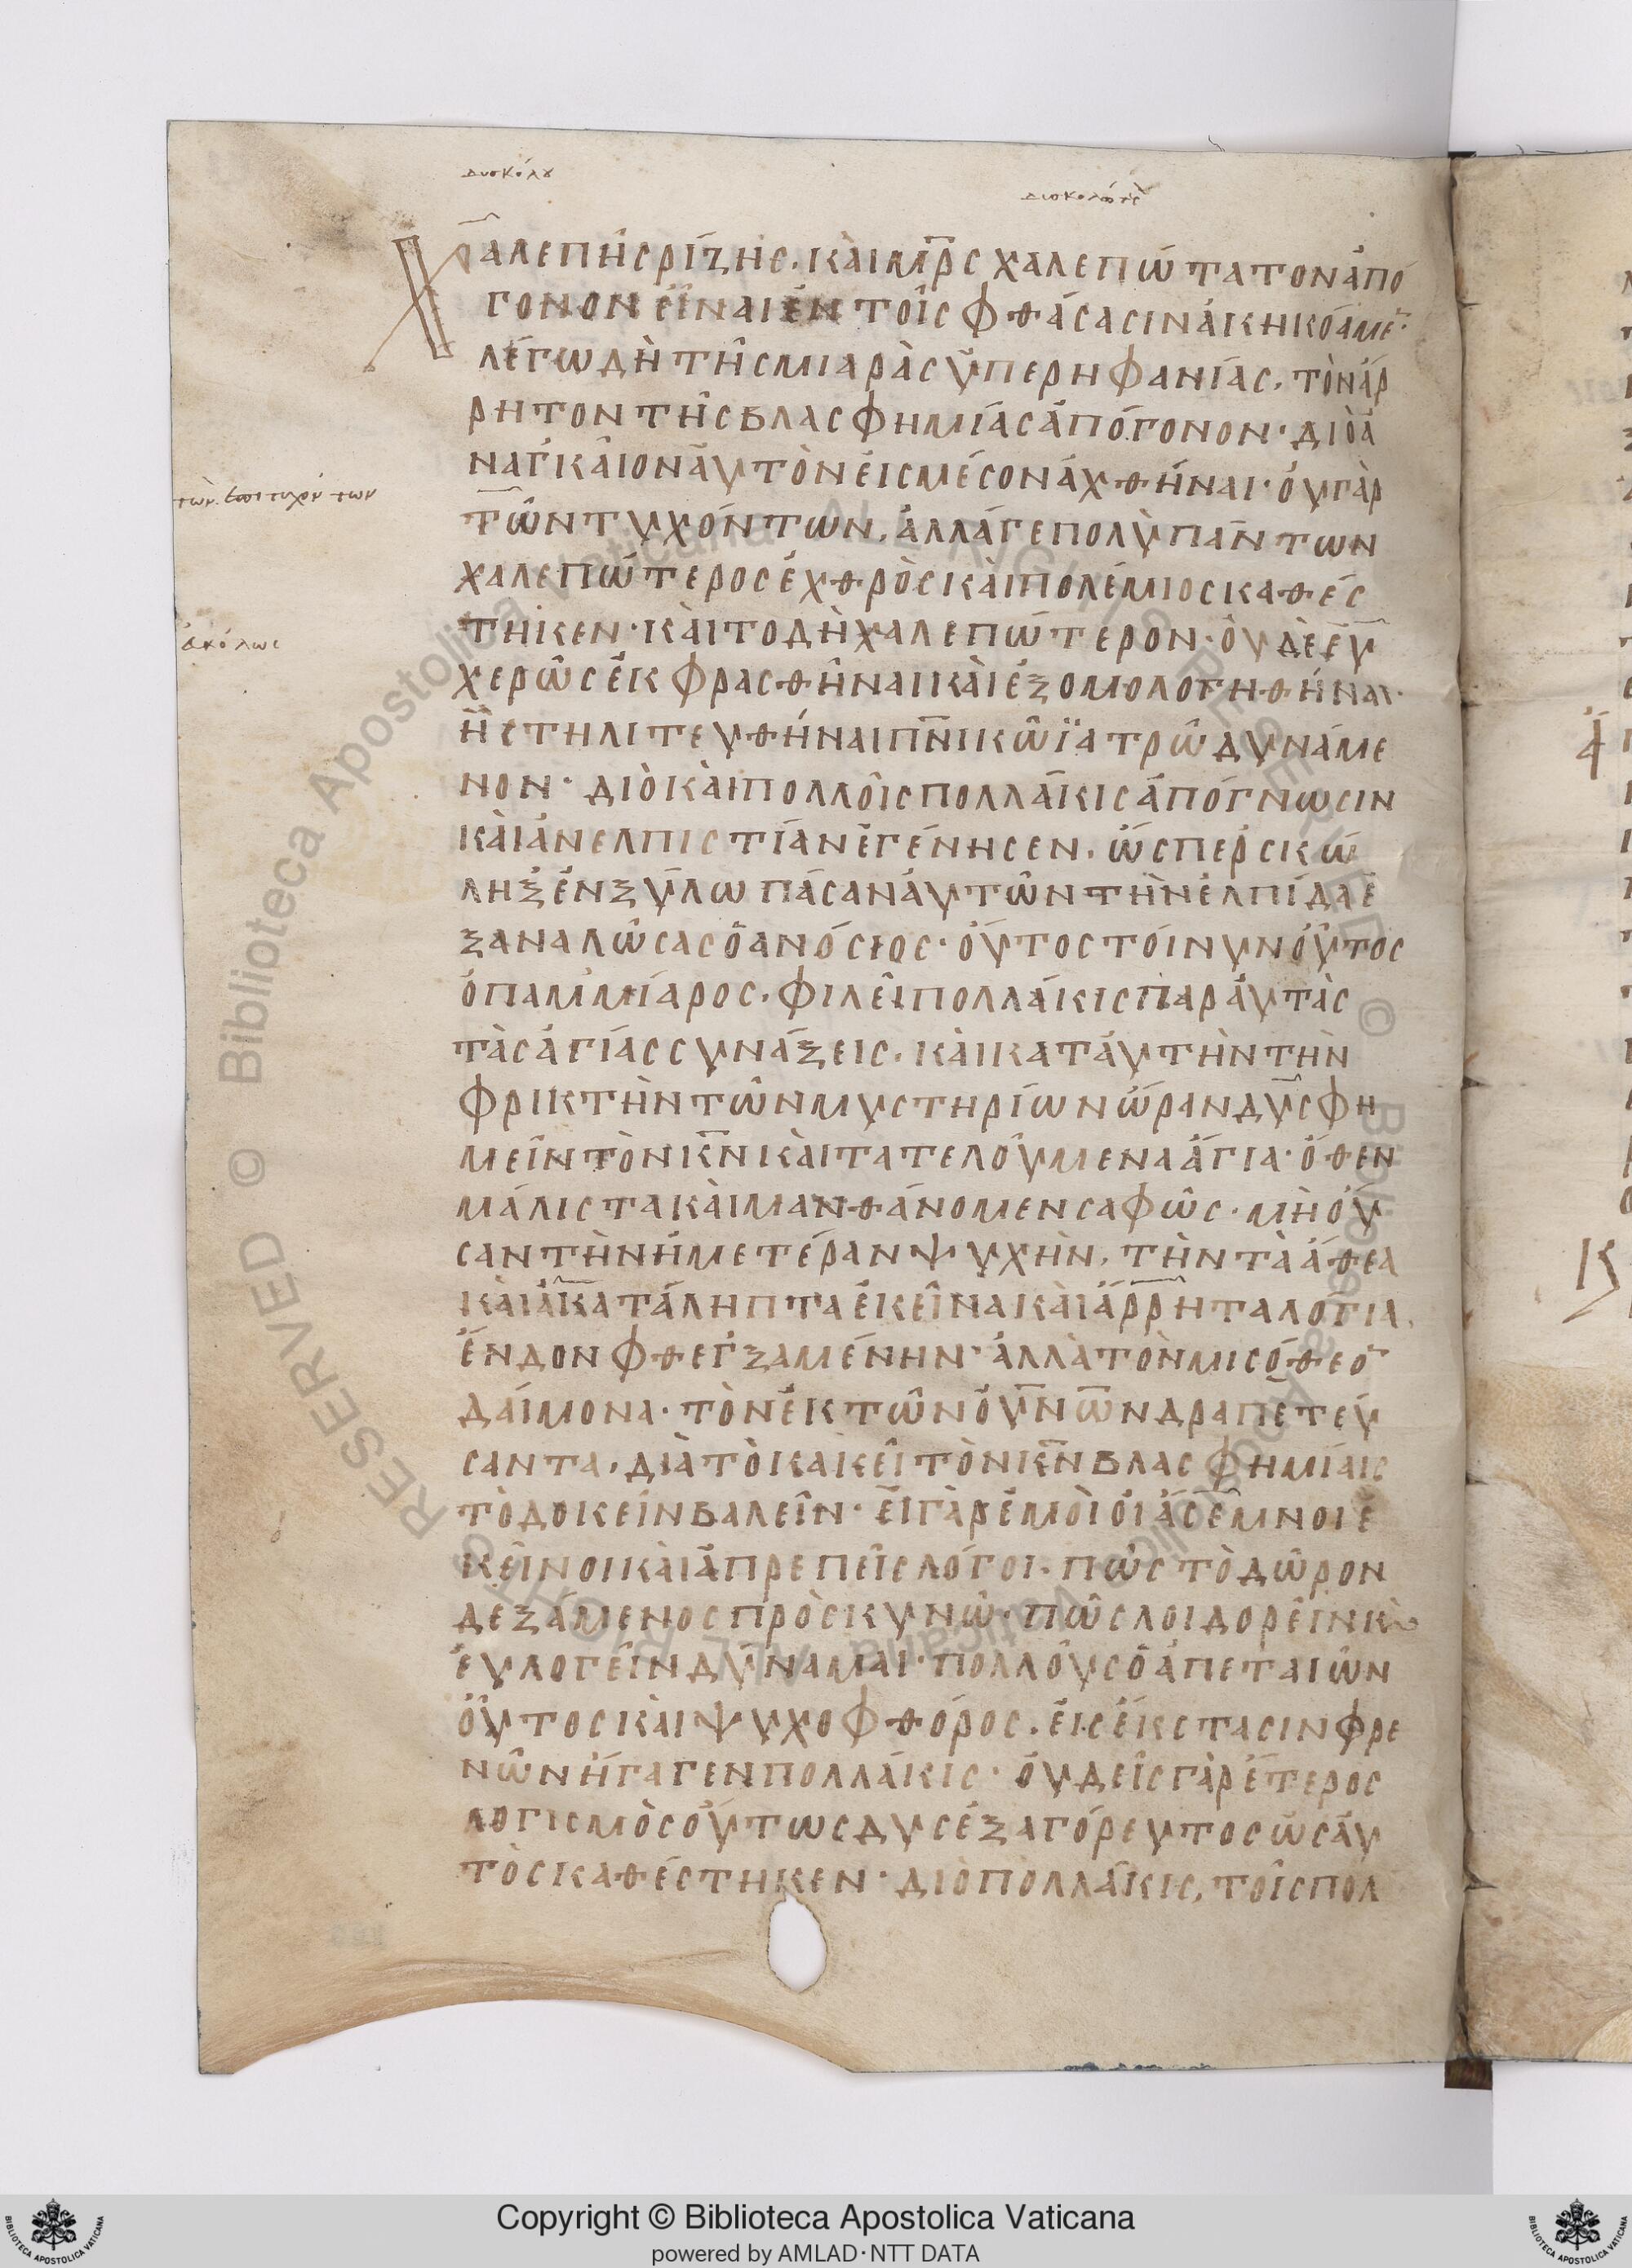 δυσκόλου
δυσκολώτ
Χαλεπῆς ῥίζης, καὶ μρ̅ς χαλεπώτατον ἀπό
γονον εἶναι ἐν τοῖς φθάσασιν ἀκηκόαμε̅·
λέγω δὴ τῆς μιαρᾶς ὑπερηφανίας, τὸν ἄρ
ρητον τῆς βλασφημίας ἀπόγονον· διὸ ἀ
ναγκαῖον αὐτὸν εἰς μέσον ἀχθῆναι· οὐ γὰρ
τῶν ἐπιτυχόντων
τῶν τυχόντων, ἀλλάγε πολὺ πάντων
χαλεπώτερος ἐχθρὸς καὶ πολέμιος καθέσ
ἀκόλως
τηκεν· καὶ το δὴ χαλεπώτερον· οὐδὲ εὐ
χερῶς ἐκφρασθῆναι καὶ ἐξομολογηθῆναι·
ἢ στηλιτευθῆναι πν̅ικῶ ϊατρῶ δυνάμε
νον· διὸ καὶ πολλοῖς πολλάκις ἀπόγνωσιν
καὶ ἀνελπιστίαν ἐγέννησεν, ὥσπερ σκώ
ληξ ἐν ξύλω πᾶσαν αὐτῶν τὴν ἐλπίδα ἐ
ξαναλώσας ὁ ἀνόσιος· οὗτος τοίνυν οὗτος
ὁ παμμίαρος, φιλεῖ πολλάκις παρ αὐτὰς
τὰς ἁγίας συνάξεις, καὶ κατ αὐτὴν τὴν
φρικτὴν τῶν μυστηρίων ὥραν δυσφη
μεῖν τὸν κν̅ καὶ τα τελούμενα ἅγια· ὅθεν
μάλιστα καὶ μανθάνομεν σαφῶς· μὴ οὖ
σαν τὴν ἡμετέραν ψυχὴν, τὴν τὰ ἄθεα
καὶ ἀκατάληπτα ἐκεῖνα καὶ ἄρρητα λόγια,
ἔνδον φθεγξαμένην· ἀλλὰ τὸν μισόθεο̅
δαίμονα· τὸν ἐκ τῶν οὐν̅ω̅ν δραπετεύ
σαντα, διὰ τὸ κακεῖ τὸν κν̅ βλασφημίαις
τὸ δοκεῖν βαλεῖν· εἰ γὰρ ἐμοὶ οἱ ἄσεμνοι ἐ
κεῖνοι καὶ ἀπρεπεῖς λόγοι, πῶς τὸ δῶρον
δεξάμενος προσκυνῶ· πῶς λοιδορεῖν κ̀
εὐλογεῖν δύναμαι· πολλοὺς ὁ ἀπεταιὼν
οὗτος καὶ ψυχοφθόρος, εἰς ἔκστασιν φρε
νῶν ἤγαγεν πολλάκις· οὐδεὶς γὰρ ἕτερος
λογισμὸς οὕτως δυσεξαγόρευτος ὡς αὐ
τὸς καθέστηκεν· διὸ πολλάκις, τοῖς πολ